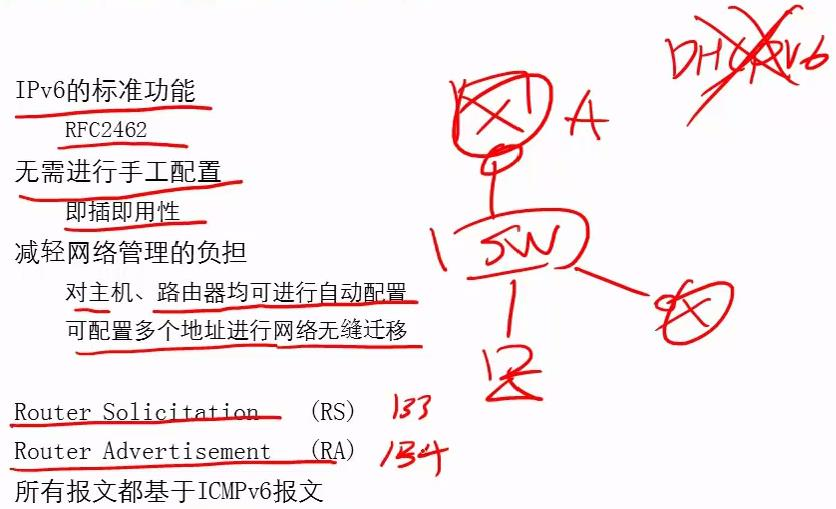 DHCPv6
IPv6的标准功能
RFC2462
A
无需进行手工配置
即插即用性
SW
减轻网络管理的负担
对主机、路由器均可进行自动配置
可配置多个地址进行网络无缝迁移
Router Solicitation (RS) 133
Router Advertisement (RA) 134
所有报文都基于ICMPv6报文